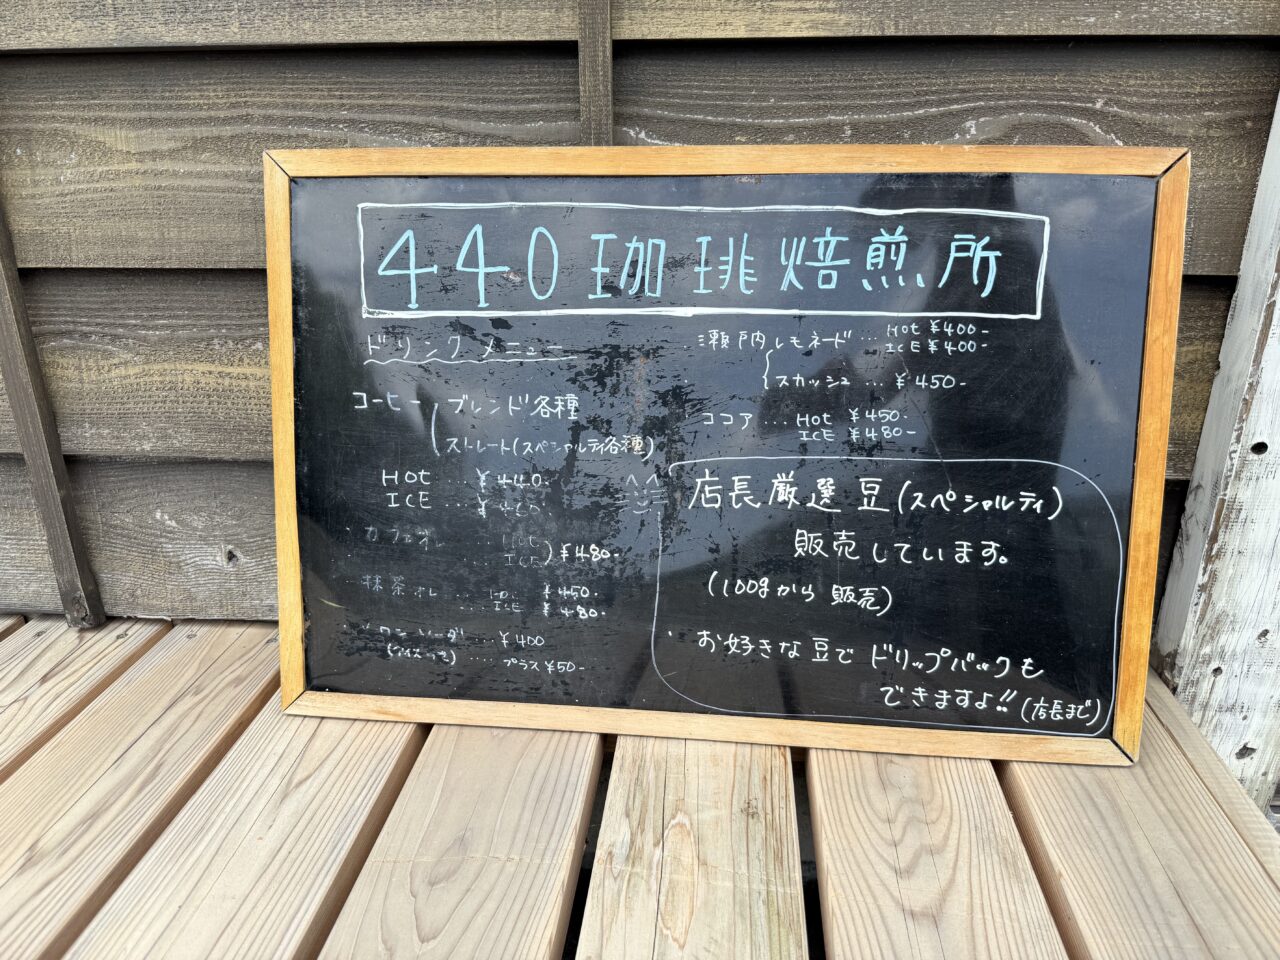 440珈琲焙煎所
ドリンクメニュー
コーヒー ブレンド各種
ストレート(スペシャルティ各種)
HOT … ¥440-
ICE … ¥460-
・カフェオレ … HOT
… ICE ) ¥480-
・抹茶オレ … HOT ¥450-
… ICE ¥480-
ソーダ … ¥400
(アイスつき) …. プラス¥50-
・瀬戸内レモネード … HOT ¥400-
ICE ¥400-
スカッシュ … ¥450-
・ココア … HOT ¥450-
ICE ¥480-
・店長厳選豆(スペシャルティ)
販売しています。
(100gから販売)
・お好きな豆でドリップバックも
できますよ!! (店長まで)